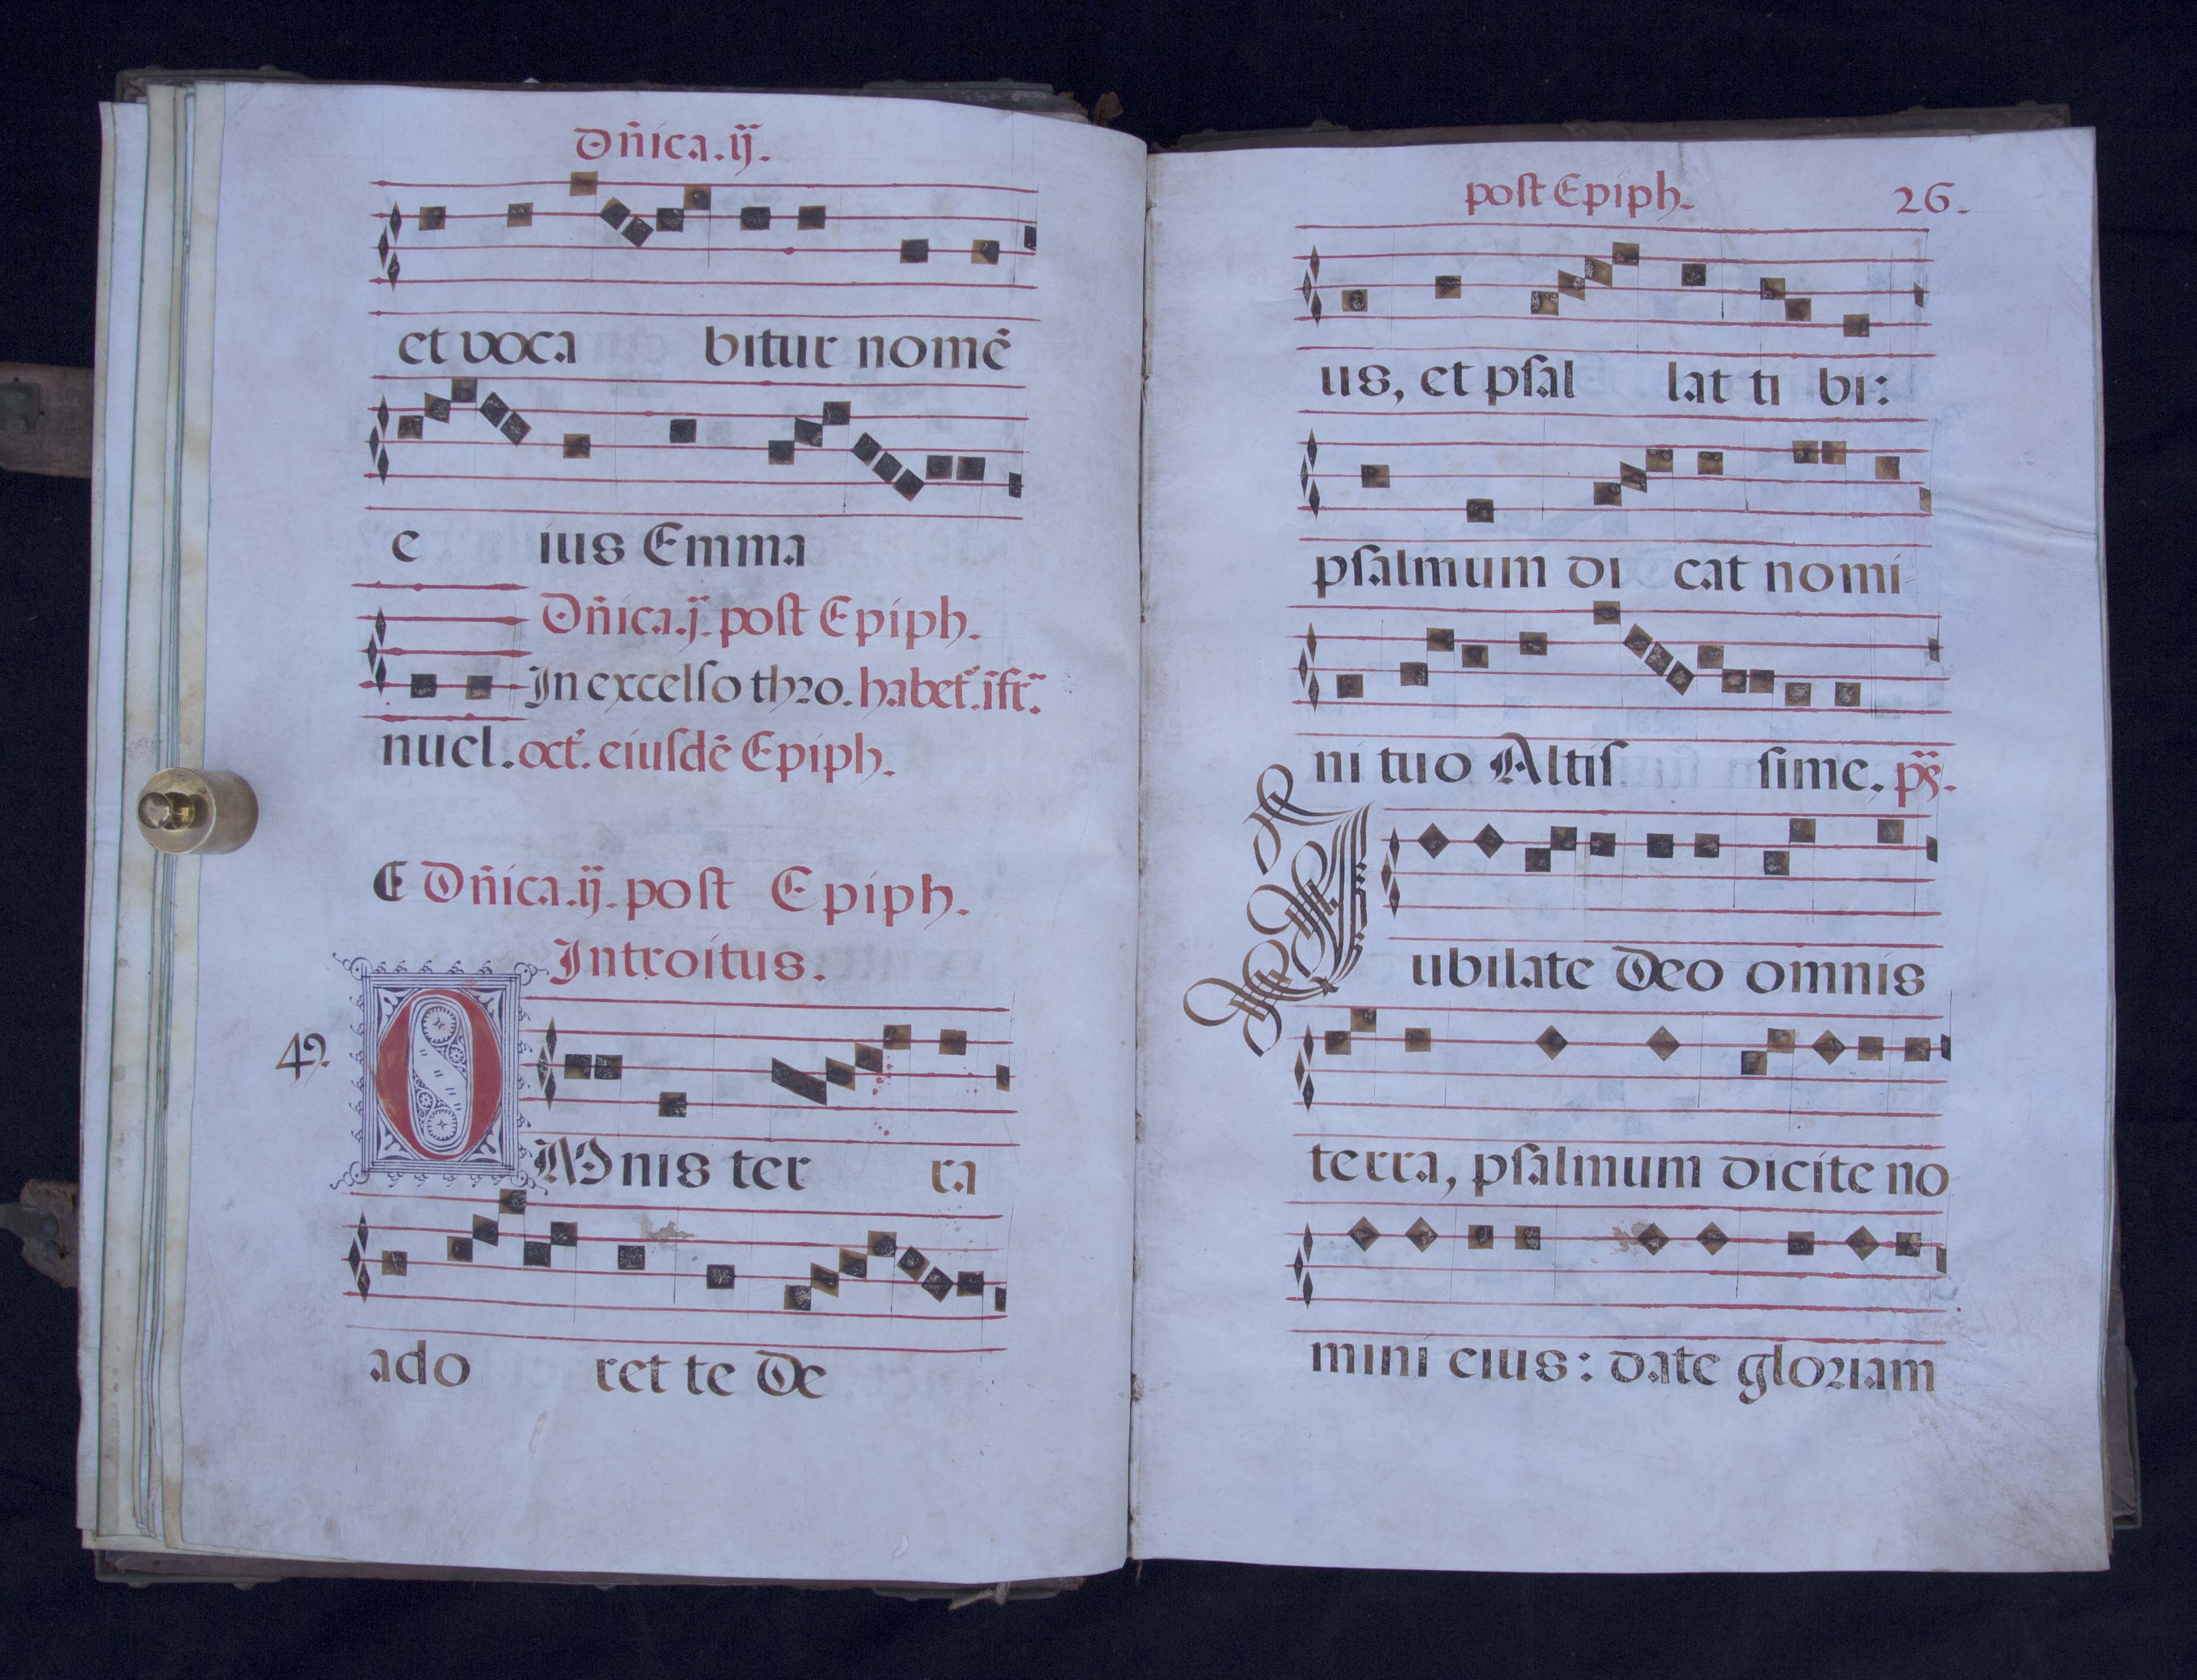 Dñica.ij.
et voca bitur nomẽ
e ius Emma
Dñica.j. post Epiph.
In excelso thro. habet᷑.
nuel. oct. eiusdẽ Epiph.
E Dñica.ij. post Epiph.
Introitus.
42.
OMnis ter ra
ado ret te De
post Epiph. 26.
us, et psal lat ti bi:
psalmum di cat nomi
ni tuo Altis sime. ps̃.
Jubilate Deo omnis
terra, psalmum dicite no
mini eius: date gloriam